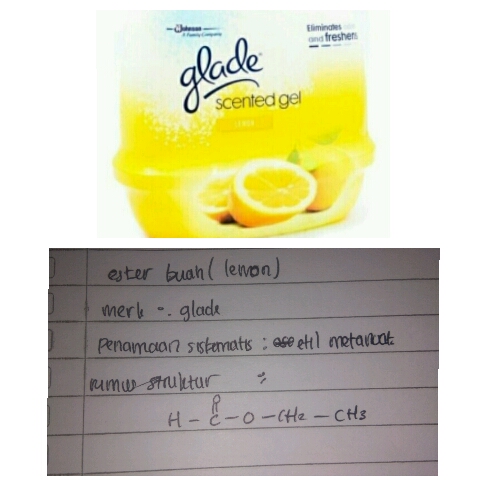 Johnson
A Family Company
Eliminates
and freshens
glade
scented gel
LEMON
ester buah (lemon)
merk : glade
Penamaan sistematis : etil metanoat
rumus struktur :
O
H - C - O - CH2 - CH3